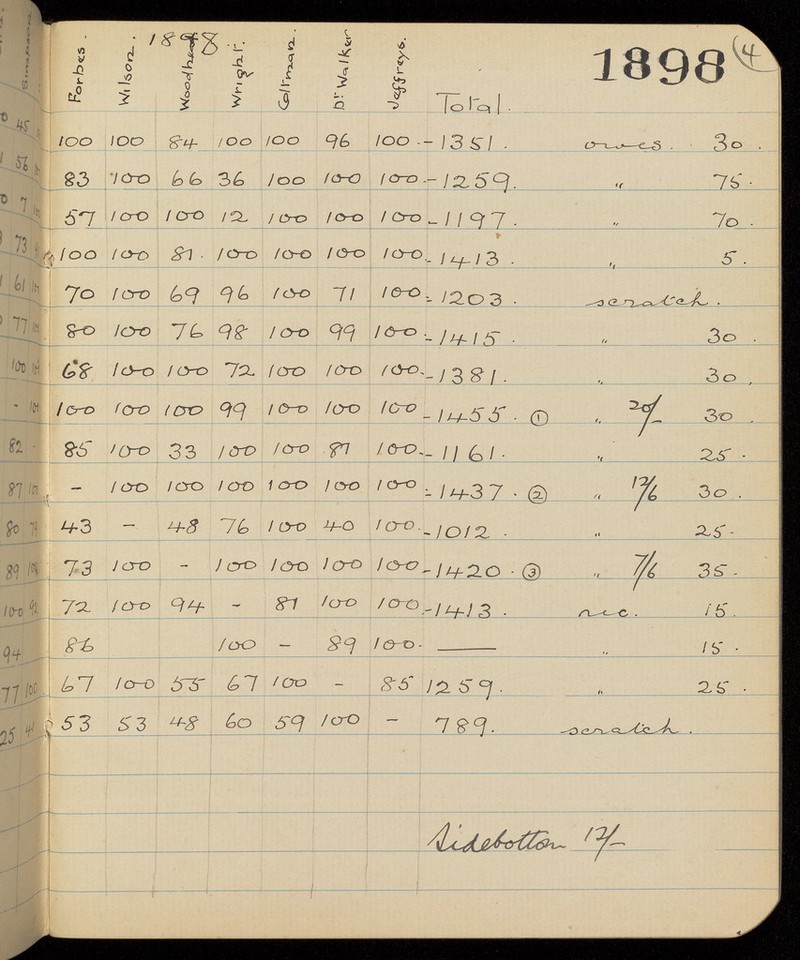 1898. 1898 (4
Forbes. Wilson. Woodhead Wright. Coltman. Dr. Walker Jeffreys. Total.
100 100 84 100 100 96 100 - 1351. owes. 30.
83 100 66 36 100 100 100 - 1259. " 75.
57 100 100 12 100 100 100 - 1197. " 70.
100 100 81. 100 100 100 100 - 1413. " 5.
70 100 69 96 100 71 100 - 1203. scratch.
80 100 76 98 100 99 100 - 1415. " 30
68 100 100 72 100 100 100. - 1381. " 30.
100 100 100 99 100 100 100 - 1455. ① " 20/- 30.
85 100 33 100 100 87 100. - 1161. " 25.
- 100 100 100 100 100 100 - 1437. ② " 12/6 30.
43 - 48 76 100 40 100. - 1012. " 25.
73 100 - 100 100 100 100 - 1420. ③ " 7/6 35.
72 100 94 - 81 100 100. - 1413. rec. 15.
86 100 - 89 100. — " 15.
67 100 55 67 100 - 85 1259. " 25.
53 53 48 60 59 100 - 789. scratch.
Sidebottom 12/-